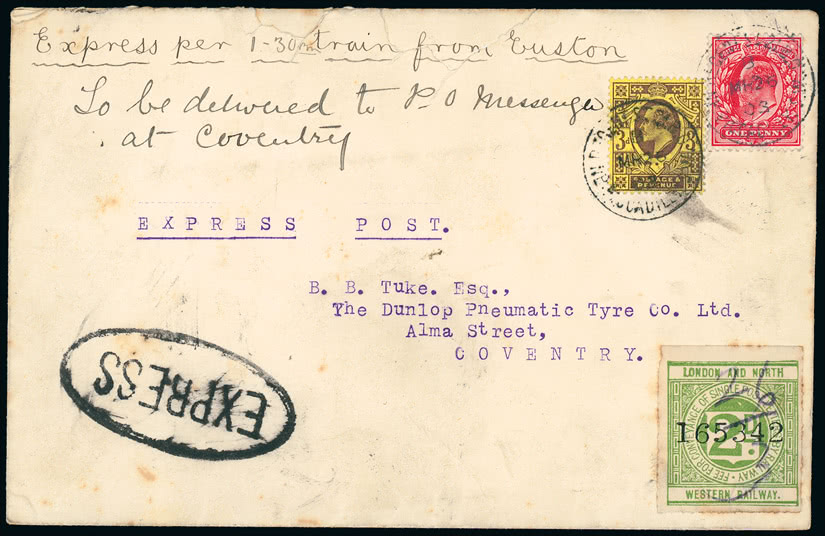 Express per 1-30 train from Euston
To be delivered to P.O Messenger
at Coventry
3d
POSTAGE &
REVENUE
ONE PENNY
EXPRESS POST.
B. B. Tuke. Esq.,
The Dunlop Pneumatic Tyre Co. Ltd.
Alma Street,
COVENTRY.
EXPRESS
LONDON AND NORTH
FEE FOR CONVEYANCE OF SINGLE POST LETTERS BY RAILWAY
2d
165342
WESTERN RAILWAY.